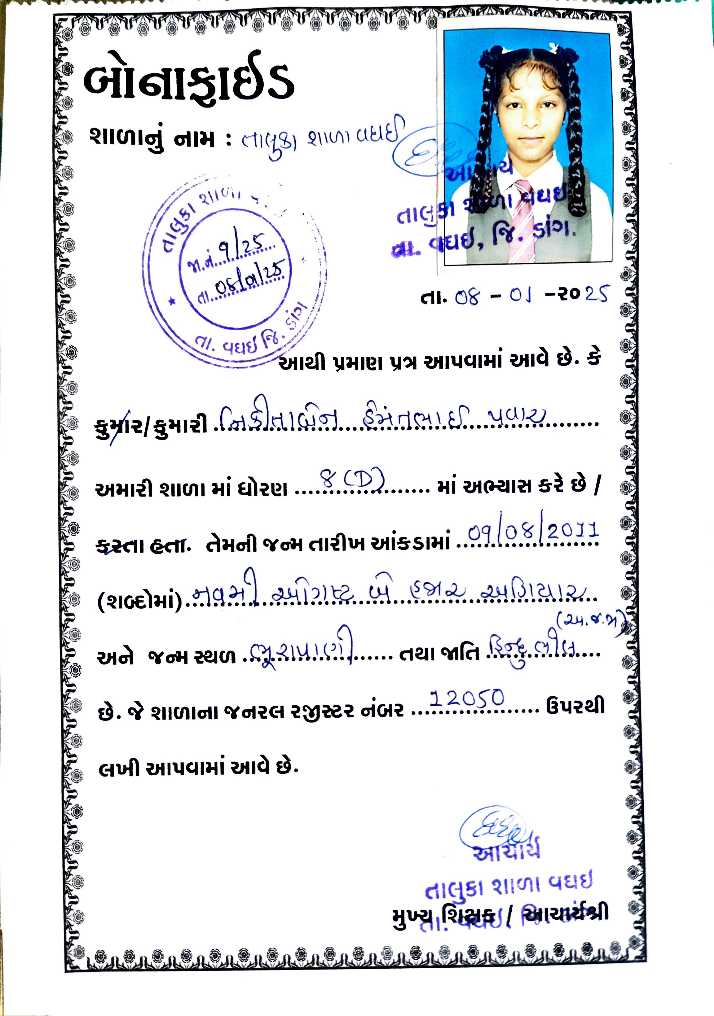 બોનાફાઈડ
શાળાનું નામ : તાલુકા શાળા વઘઈ
આચાર્ય
તાલુકા શાળા વઘઇ
તા. વઘઇ, જિ. ડાંગ.
તાલુકા શાળા
જા.નં. 9/25
તા. 08/01/25
તા. વઘઇ જિ. ડાંગ
તા. 08 - 01 -૨૦25
આથી પ્રમાણ પત્ર આપવામાં આવે છે. કે
કુમાર/કુમારી નિકીતાબેન હેમંતભાઈ પવાર
અમારી શાળા માં ધોરણ ....8 (D)........ માં અભ્યાસ કરે છે /
કરતા હતા. તેમની જન્મ તારીખ આંકડામાં ..09/08/2011
(શબ્દોમાં).નવમી ઓગષ્ટ બે હજાર અગિયાર..
(અ.જ.જા)
અને જન્મ સ્થળ .ભૂરાપાણી...... તથા જાતિ હિન્દુ ભીલ....
છે. જે શાળાના જનરલ રજીસ્ટર નંબર ..12050.......... ઉપરથી
લખી આપવામાં આવે છે.
આચાર્ય
તાલુકા શાળા વઘઇ
તા. વઘઇ, જિ. ડાંગ
મુખ્ય શિક્ષક / આચાર્યશ્રી